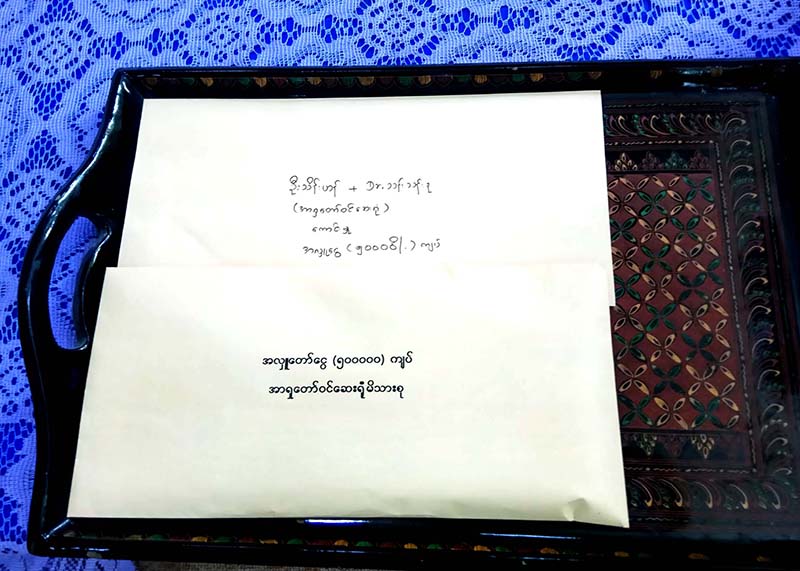 ဦးသိန်းဟန် + Dr. သန်းသန်းနု
(အာရှတော်ဝင်ဆေးရုံ)
အလှူငွေ (၅၀၀၀၀၀ိ/.) ကျပ်
အလှူတော်ငွေ (၅၀၀၀၀၀) ကျပ်
အာရှတော်ဝင်ဆေးရုံမိသားစု